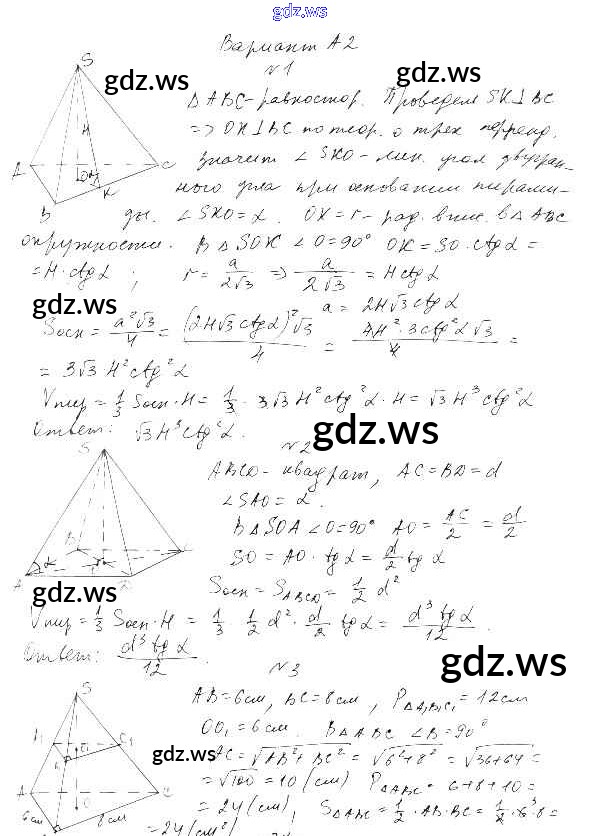 gdz.ws
Вариант А2
№1
Δ ABC - равностор. Проведем SK⊥BC
=> OK⊥BC по теор. о трех перпенд.
Значит ∠SKO - лин. угол двугран-
ного угла при основании пирами-
ды. ∠SKO = α. OK = r - рад. впис. в Δ ABC
окружности. В Δ SOK ∠O = 90° OK = SO · ctg α =
= H · ctg α ; r = a/2√3 => a/2√3 = H ctg α
a = 2H√3 ctg α
Sосн = a²√3/4 = (2H√3 ctg α)²√3/4 = 4H² · 3ctg²α √3/4 =
= 3√3 H² ctg²α
Vпир = 1/3 Sосн · H = 1/3 · 3√3 H² ctg²α · H = √3 H³ ctg²α
Ответ: √3 H³ ctg²α.
№2
ABCD - квадрат, AC = BD = d
∠SAO = α.
В Δ SOA ∠O = 90° AO = AC/2 = d/2
SO = AO · tg α = d/2 tg α
Sосн = S ABCD = 1/2 d²
Vпир = 1/3 Sосн · H = 1/3 · 1/2 d² · d/2 tg α = d³ tg α/12
Ответ: d³ tg α/12.
№3
AB = 6 см, BC = 8 см, P ΔA₁B₁C₁ = 12 см
OO₁ = 6 см. В Δ ABC ∠B = 90°
AC = √AB² + BC² = √6² + 8² = √36+64 =
= √100 = 10 (см) P ΔABC = 6 + 8 + 10 =
= 24 (см), S ΔABC = 1/2 · AB · BC = 1/2 · 6 · 8 =
= 24 (см²)
gdz.ws
gdz.ws
gdz.ws
gdz.ws
gdz.ws
gdz.ws
gdz.ws
gdz.ws